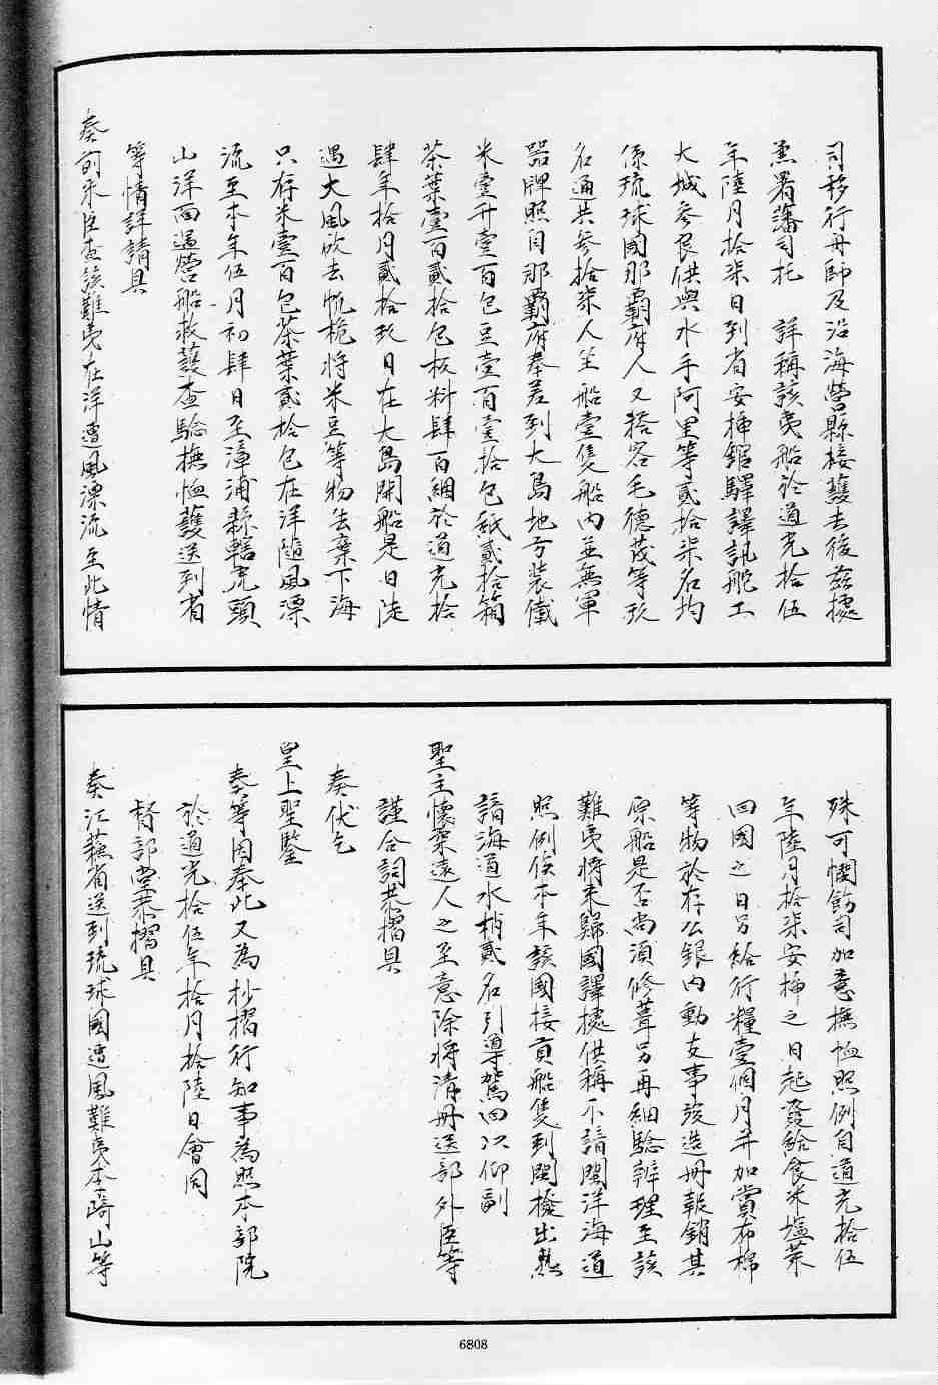 司移行舟師及沿海營縣接護去後茲據
熏署藩司托　詳稱該夷船於道光拾伍
年陸月拾柒日到省安插館驛譯訊舵工
大城叁良供與水手阿里等貳拾柒名均
係琉球國那霸府人又搭客毛德茂等玖
名通共參拾柒人坐船壹隻船內並無軍
器牌照自那霸府奉差到大島地方裝儎
米壹升壹百包豆壹百壹拾包紙貳拾箱
茶葉壹百貳拾包板料肆百綑於道光拾
肆年拾月貳拾玖日在大島開船是日陡
遇大風砍去帆桅將米豆等物丟棄下海
只存米壹百包茶葉貳拾包在洋隨風漂
流至本年伍月初肆日至漳浦縣轄虎頭
山洋面遇營船救護查驗撫恤護送到省
等情詳請具
奏前來臣查該難夷在洋遭風漂流至此情
殊可憫飭司加意撫恤照例自道光拾伍
年陸月拾柒安插之日起發給食米塩菜
回國之日另給行糧壹個月并加賞布棉
等物於存公銀內動支事竣造冊報銷其
原船是否尚須修葺另再細驗辦理至該
難夷將來歸國譯據供稱不諳閩洋海道
照例俟本年該國接貢船隻到閩撥出熟
諳海道水梢貳名引導駕回以仰副
聖主懷柔遠人之至意除將清冊送部外臣等
謹合詞恭摺具
奏伏乞
皇上聖鑒
奏等因奉此又為抄摺行知事為照本部院
於道光拾伍年拾月拾陸日會同
督部堂恭摺具
奏江蘇省送到琉球國遭風難夷本崎山等
6808